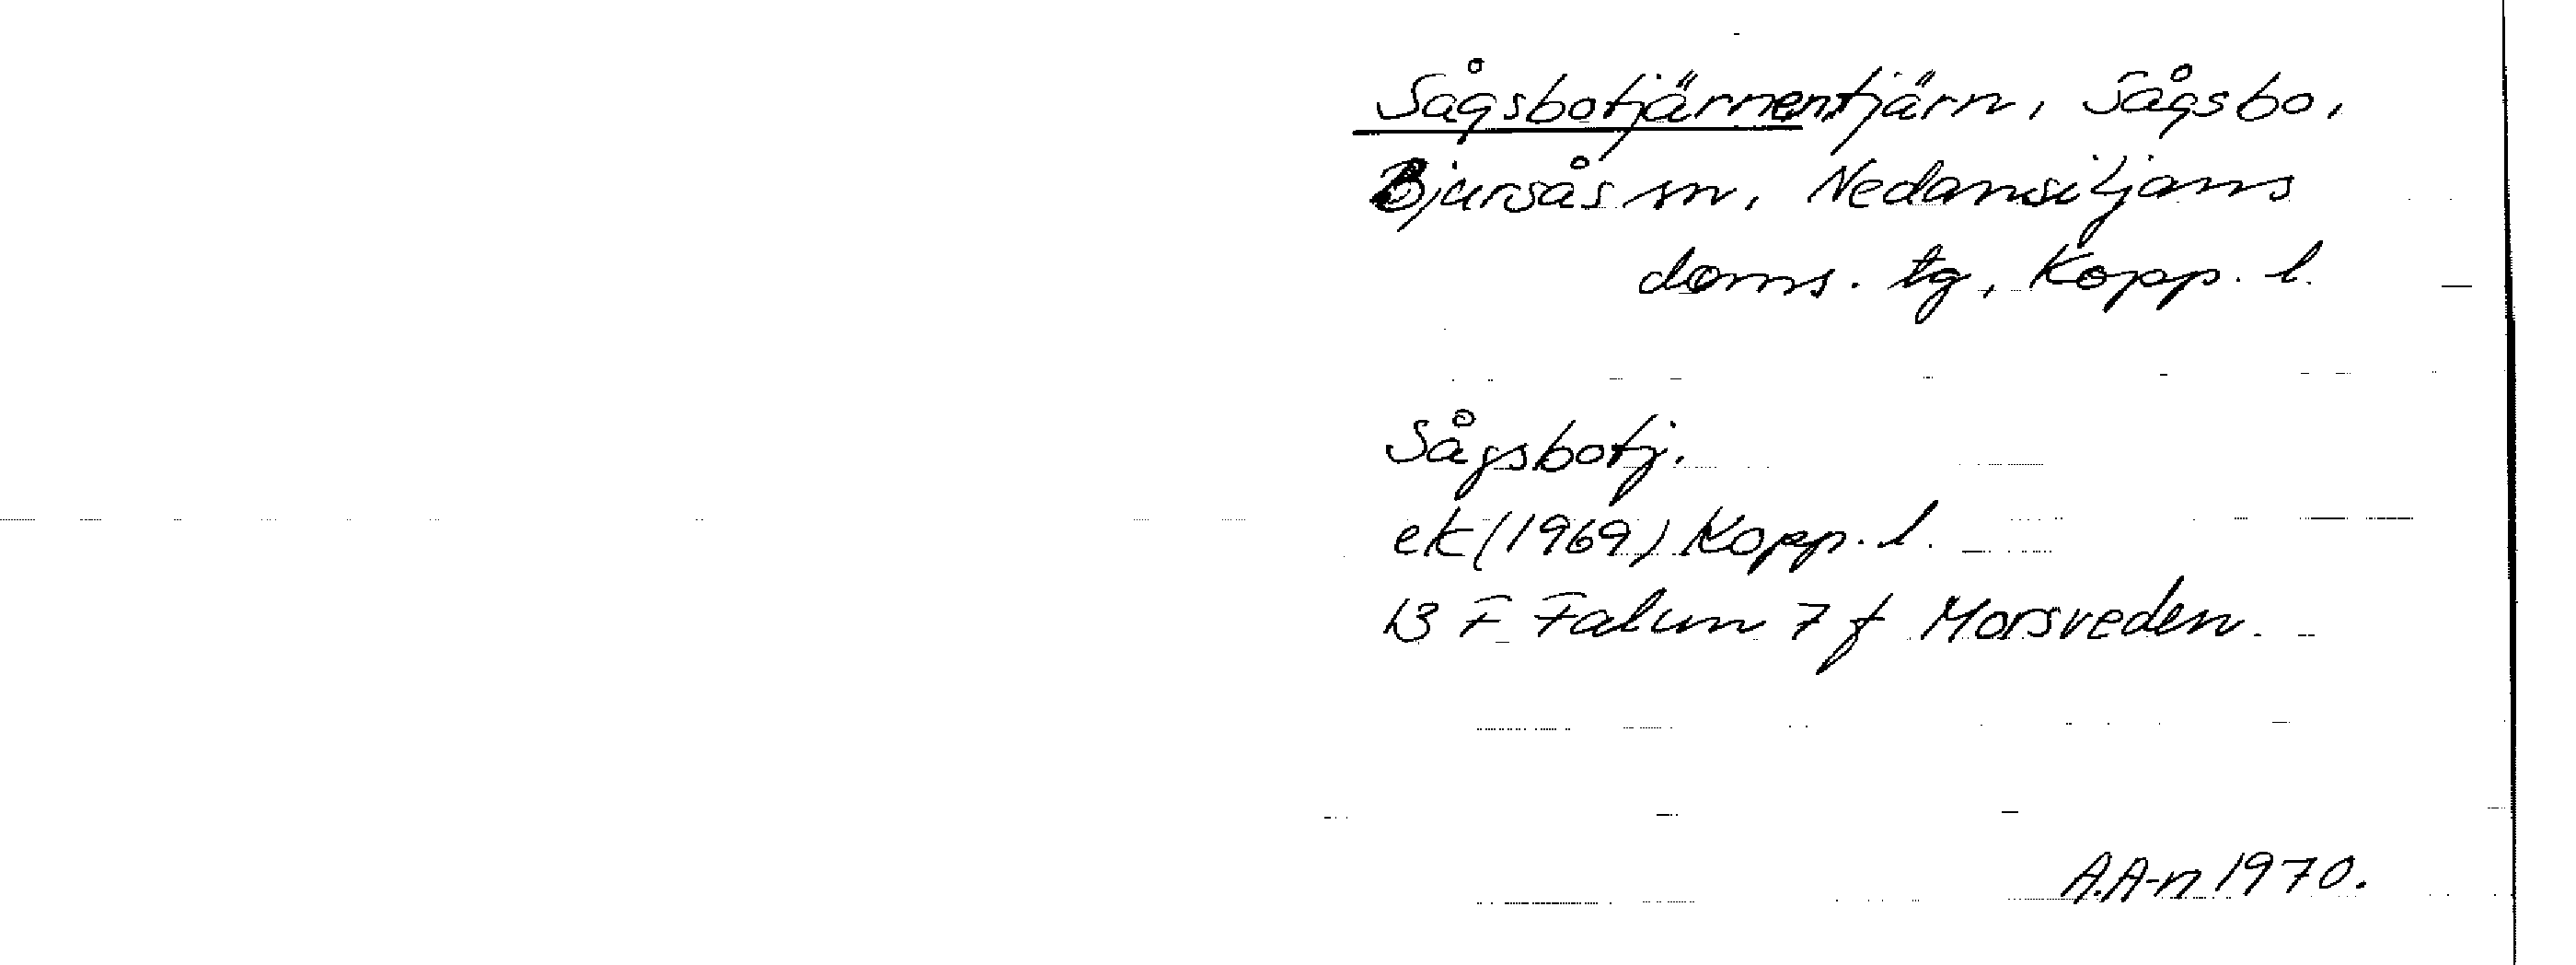 Sågsbotjärnen, tjärn, Sågsbo,
Bjursås sn, Nedansiljans
doms. tg, Kopp. l.
Sågsbotj.
ek (1969) Kopp. l.
13 F Falun 7 f Morsveden.
A.A-n 1970.